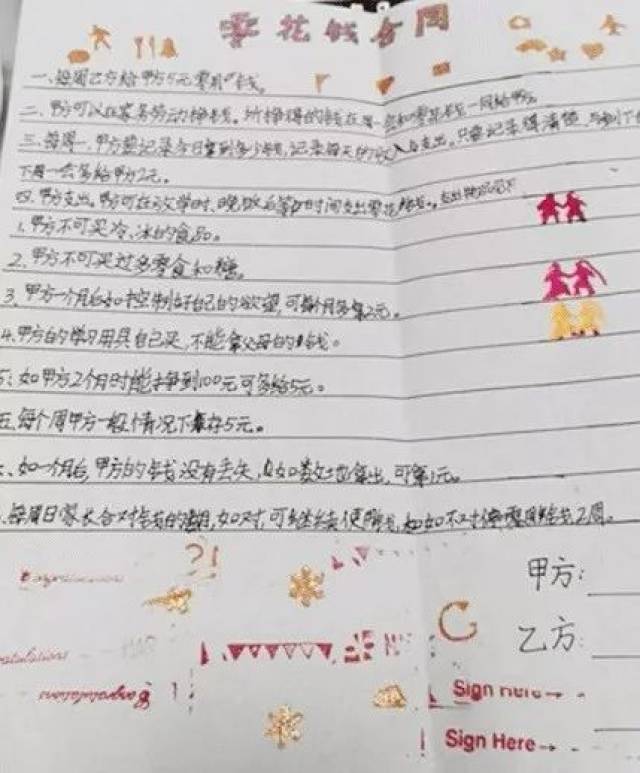 零花钱合同
一、每周乙方给甲方5元零用钱。
二、甲方可以在家务劳动挣钱。所挣得的钱在周一
三、每周一,甲方要记录今日拿到多少钱,记录每天的收入与支出,只要记录得清楚,
下周一会多给甲方2元。
四、甲方支出。甲方可在放学时、晚饭后等时间支出零花钱。支出物品见下
1、甲方不可买冷、冰的食品。
2、甲方不可买过多零食和糖。
3、甲方一个月后如控制好自己的欲望,可每个月多拿2元。
4、甲方的学习用具自己买,不能拿父母的钱。
5、如甲方2个月时能挣到100元可多给5元。
五、每个周甲方一般情况下存5元。
、如一个月后,甲方的钱没有丢失,且如数拿出,可拿1元。
每周日家长合对钱的使用,如对,可继续使用,如不对停零用钱2周。
?!
甲方:
乙方:
Congratulations
Sign Here→
Sign Here→